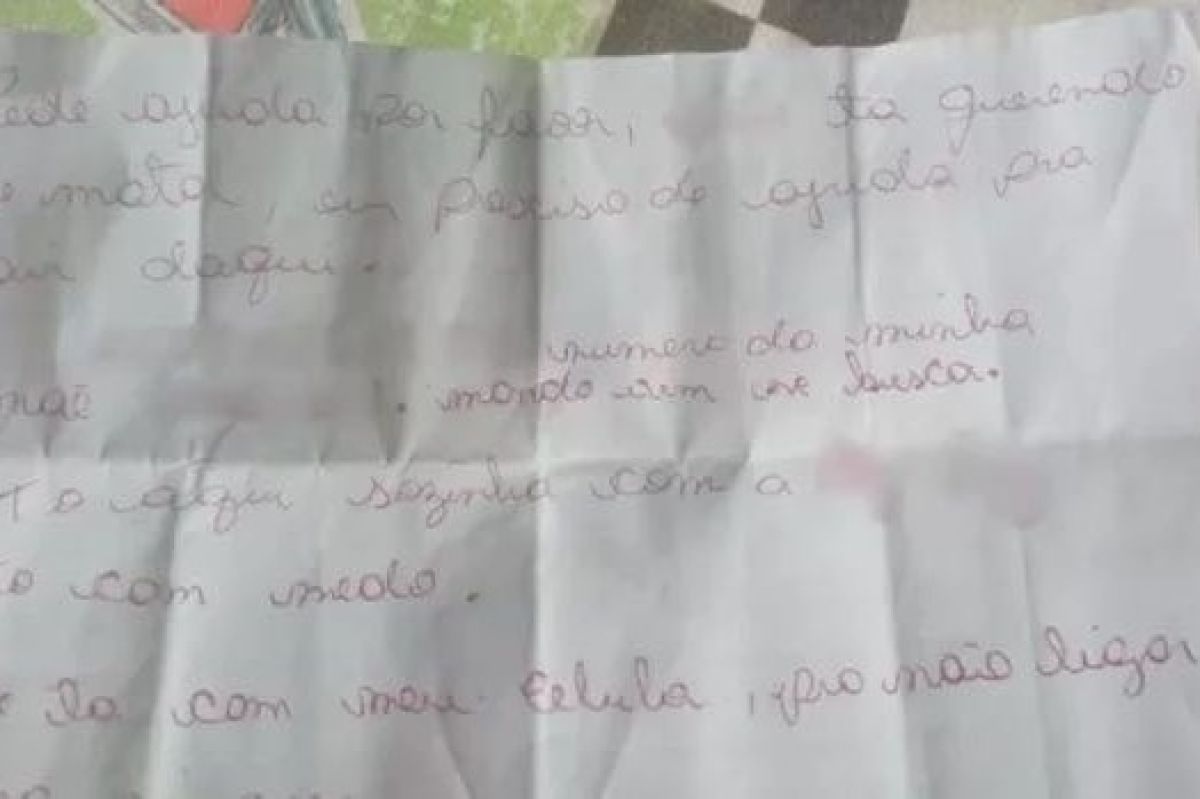 ede ajuda por favor, ta querendo
e mata, eu pesiso de ajuda pra
air daqui.
numero da minha
mãe . mando vim me busca.
To aqui sozinha com a
to com medo.
e ta com meu celula, pro não ligar